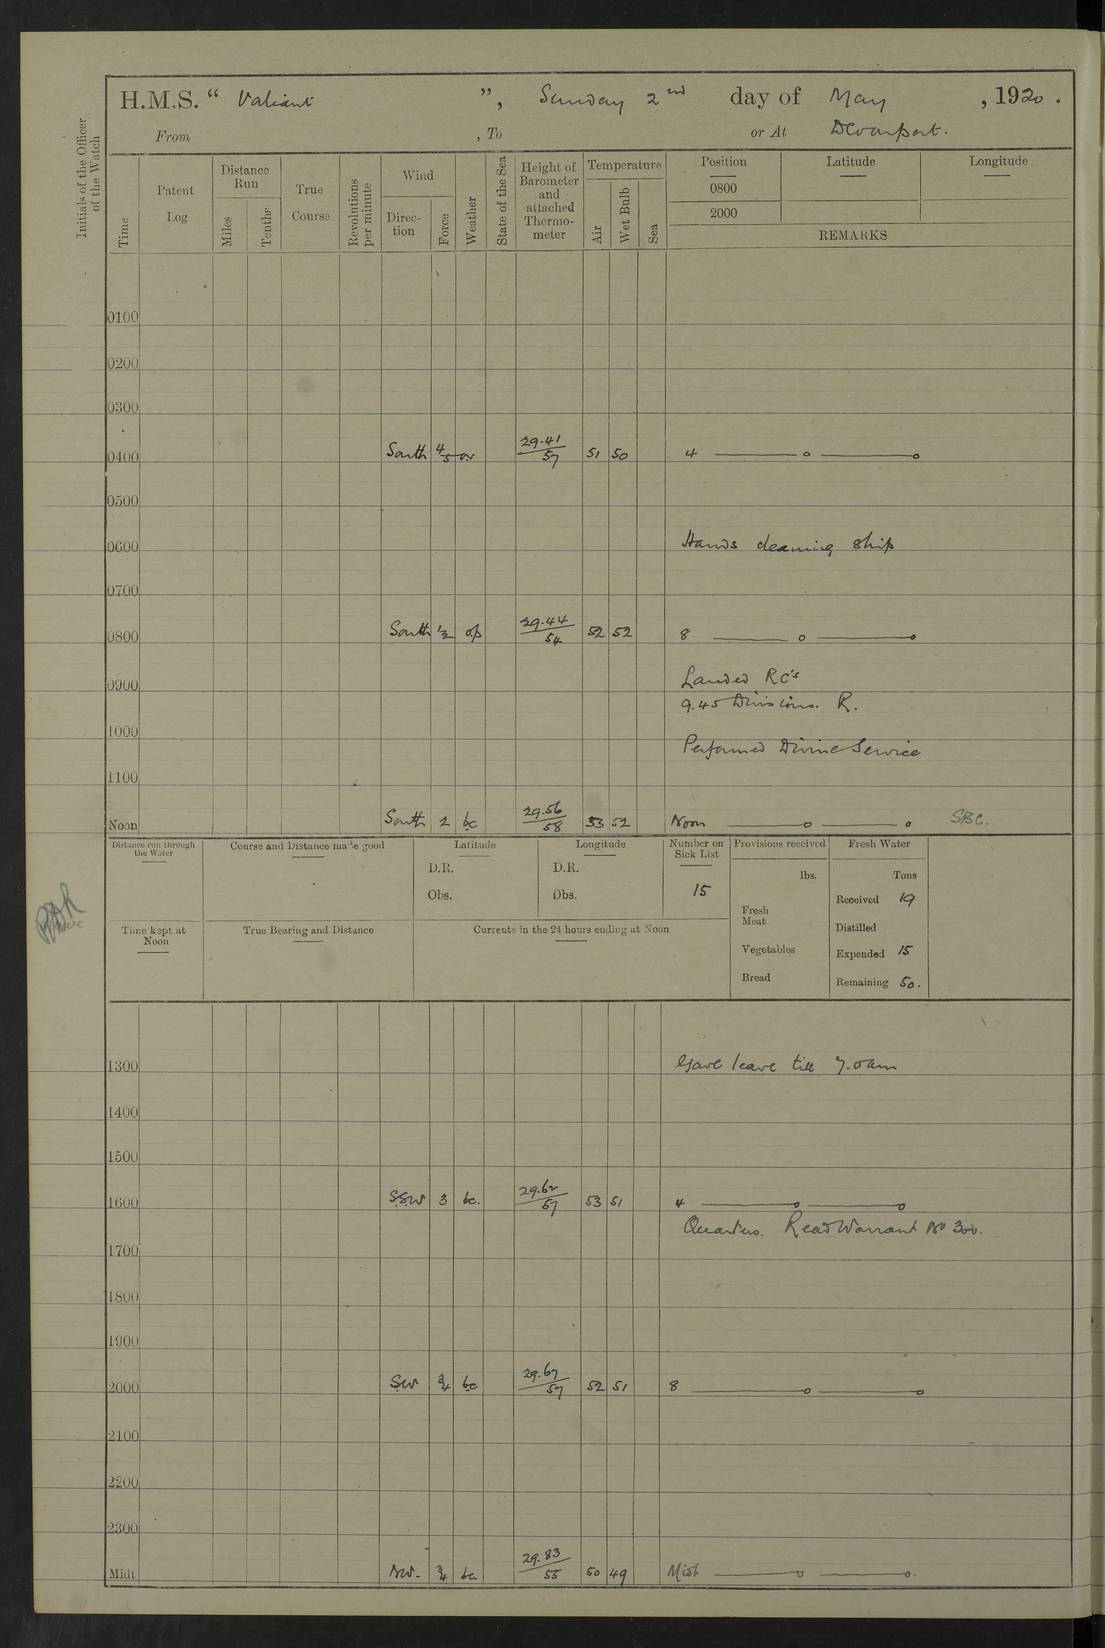 H.M.S. “ Valiant ”, Sunday 2nd day of May , 1920 .
From , To or At Devonport.
Initials of the Officer of the Watch
Time Patent Log Distance Run Miles Tenths True Course Revolutions per minute Wind Direc-tion Force Weather State of the Sea Height of Barometer and attached Thermo-meter Temperature Air Wet Bulb Sea Position Latitude Longitude
0800
2000
REMARKS
0100
0200
0300
0400 South 4/5 or 29.41/57 51 50 4 ——o——o
0500
0600 Hands cleaning ship
0700
0800 South 1/2 op 29.44/54 52 52 8 ——o——o
0900 Landed RC's
9.45 Divisions. R.
1000 Performed Divine Service
1100
Noon South 2 bc 29.56/58 53 52 Noon ——o——o SBC.
Distance run through the Water Course and Distance made good Latitude Longitude Number on Sick List Provisions received Fresh Water
D.R. D.R. lbs. Tons
Obs. Obs. 15 Received 19
Fresh Meat Distilled
Time kept at Noon True Bearing and Distance Currents in the 24 hours ending at Noon
Vegetables Expended 15
Bread Remaining 50.
1300 Gave leave till 7.0am
1400
1500
1600 SSW 3 bc. 29.62/57 53 51 4 ——o——o
Quarters. Read Warrant No 300.
1700
1800
1900
2000 SW 3/4 bc 29.67/57 52 51 8 ——o——o
2100
2200
2300
Midt NW. 3/4 bc 29.83/55 50 49 Midt ——o——o.